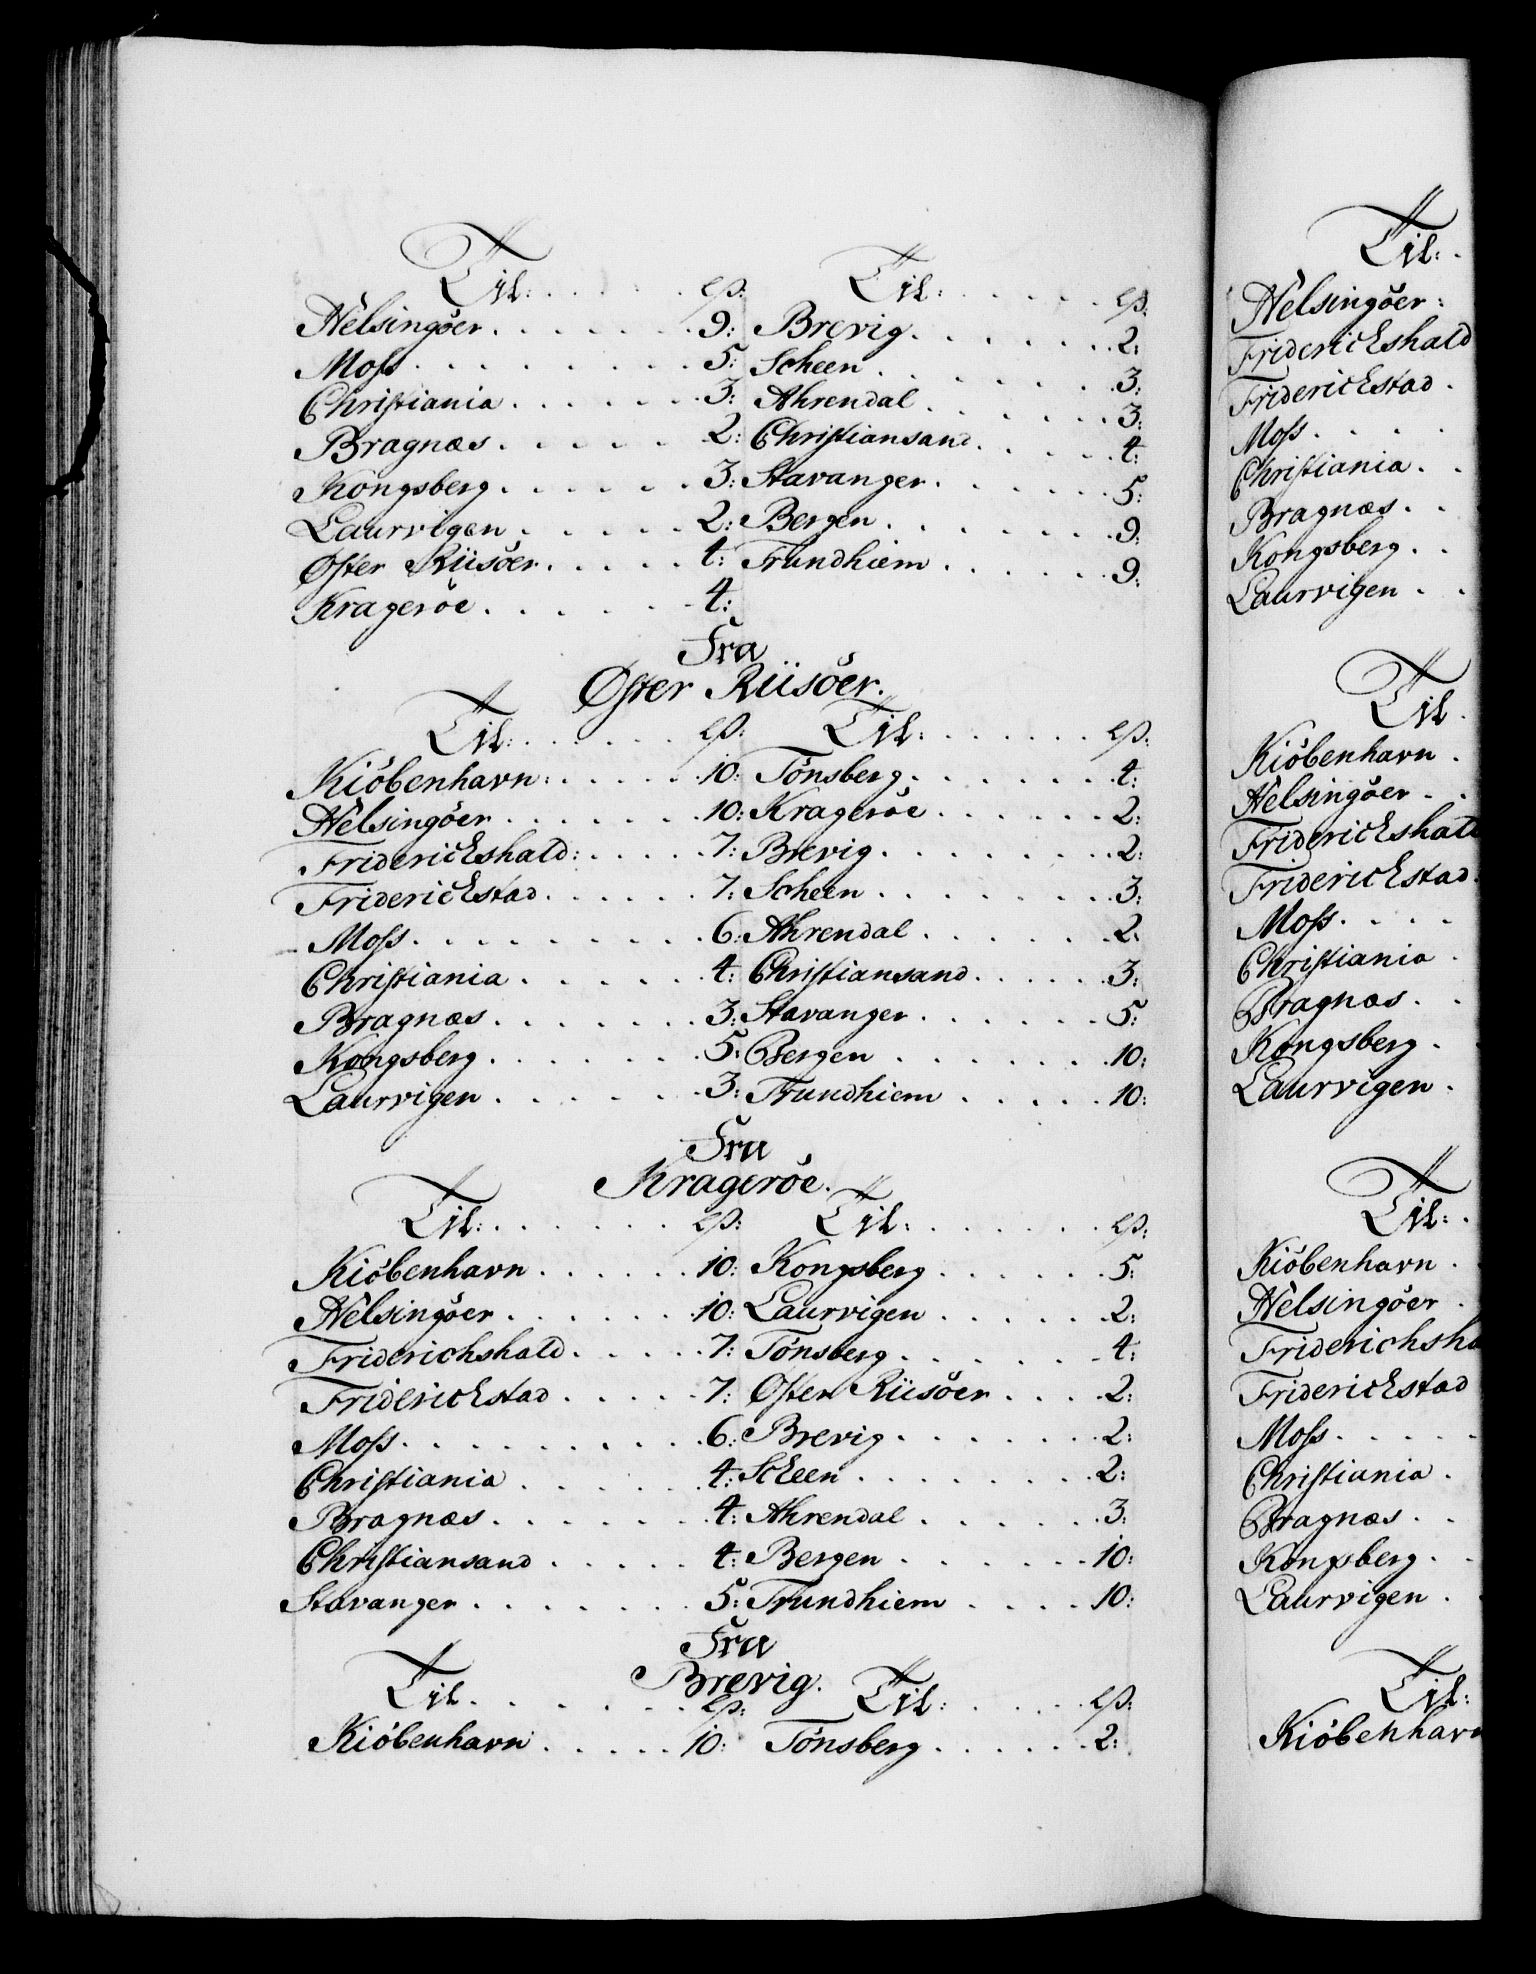 Til: . . . . . ß: Til: . . . . . ß:
Helsingöer . . . . . 9: Brevig . . . . . 2:
Moss . . . . . 5: Scheen . . . . . 3:
Christiania . . . . . 3: Ahrendal . . . . . 3:
Bragnæs . . . . . 2: Christiansand . . . . . 4:
Kongsberg . . . . . 3: Stavanger . . . . . 5:
Laurvigen . . . . . 2: Bergen . . . . . 9:
Øster Riisöer . . . . . 4: Trundhiem . . . . . 9:
Krageröe . . . . . 4:
Fra
Øster Riisöer.
Til: . . . . . ß: Til: . . . . . ß:
Kiöbenhavn: . . . . . 10: Tönsberg . . . . . 4:
Helsingöer . . . . . 10: Krageröe . . . . . 2:
Friderichshald: . . . . . 7: Brevig . . . . . 2:
Friderichstad . . . . . 7: Scheen . . . . . 3:
Moss . . . . . 6: Ahrendal . . . . . 2:
Christiania . . . . . 4: Christiansand . . . . . 3:
Bragnæs . . . . . 3: Stavanger . . . . . 5:
Kongsberg . . . . . 5: Bergen . . . . . 10:
Laurvigen . . . . . 3: Trundhiem . . . . . 10:
Fra
Krageröe.
Til: . . . . . ß: Til: . . . . . ß:
Kiöbenhavn . . . . . 10: Kongsberg . . . . . 5:
Helsingöer . . . . . 10: Laurvigen . . . . . 2:
Friderichshald . . . . . 7: Tönsberg . . . . . 4:
Friderichstad . . . . . 7: Øster Riisöer . . . . 2:
Moss . . . . . 6: Brevig . . . . . 2:
Christiania . . . . . 4: Scheen . . . . . 2:
Bragnæs . . . . . 4: Ahrendal . . . . . 3:
Christiansand . . . . . 4: Bergen . . . . . 10:
Stavanger . . . . . 5: Trundhiem . . . . . 10:
Fra
Brevig.
Til . . . . . ß: Til: . . . . . ß:
Kiöbenhavn . . . . . 10: Tönsberg . . . . . 2:
Til: .
Helsingöer :
Friderichshald
Friderichstad .
Moss . . . .
Christiania . .
Bragnæs . .
Kongsberg . .
Laurvigen . .
Til .
Kiöbenhavn .
Helsingöer . .
Friderichshald
Friderichstad .
Moss . . . .
Christiania .
Bragnæs . .
Kongsberg .
Laurvigen .
Til: .
Kiöbenhavn .
Helsingöer .
Friderichsha
Friderichstad
Moss . . . . .
Christiania .
Bragnæs . .
Kongsberg . .
Laurvigen . .
Til:
Kiöbenhavn